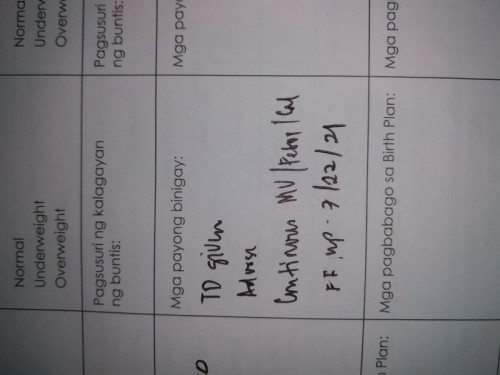 Normal
Underweight
Overweight
Pagsusuri ng kalagayan
ng buntis:
Mga payong binigay:
TD given
Advise
Continuous MV / / Cal
FF up . 7/22/21
Mga pagbabago sa Birth Plan:
Normal
Underw
Overwe
Pagsusuri
ng buntis:
Mga payo
Mga pag
n Plan: